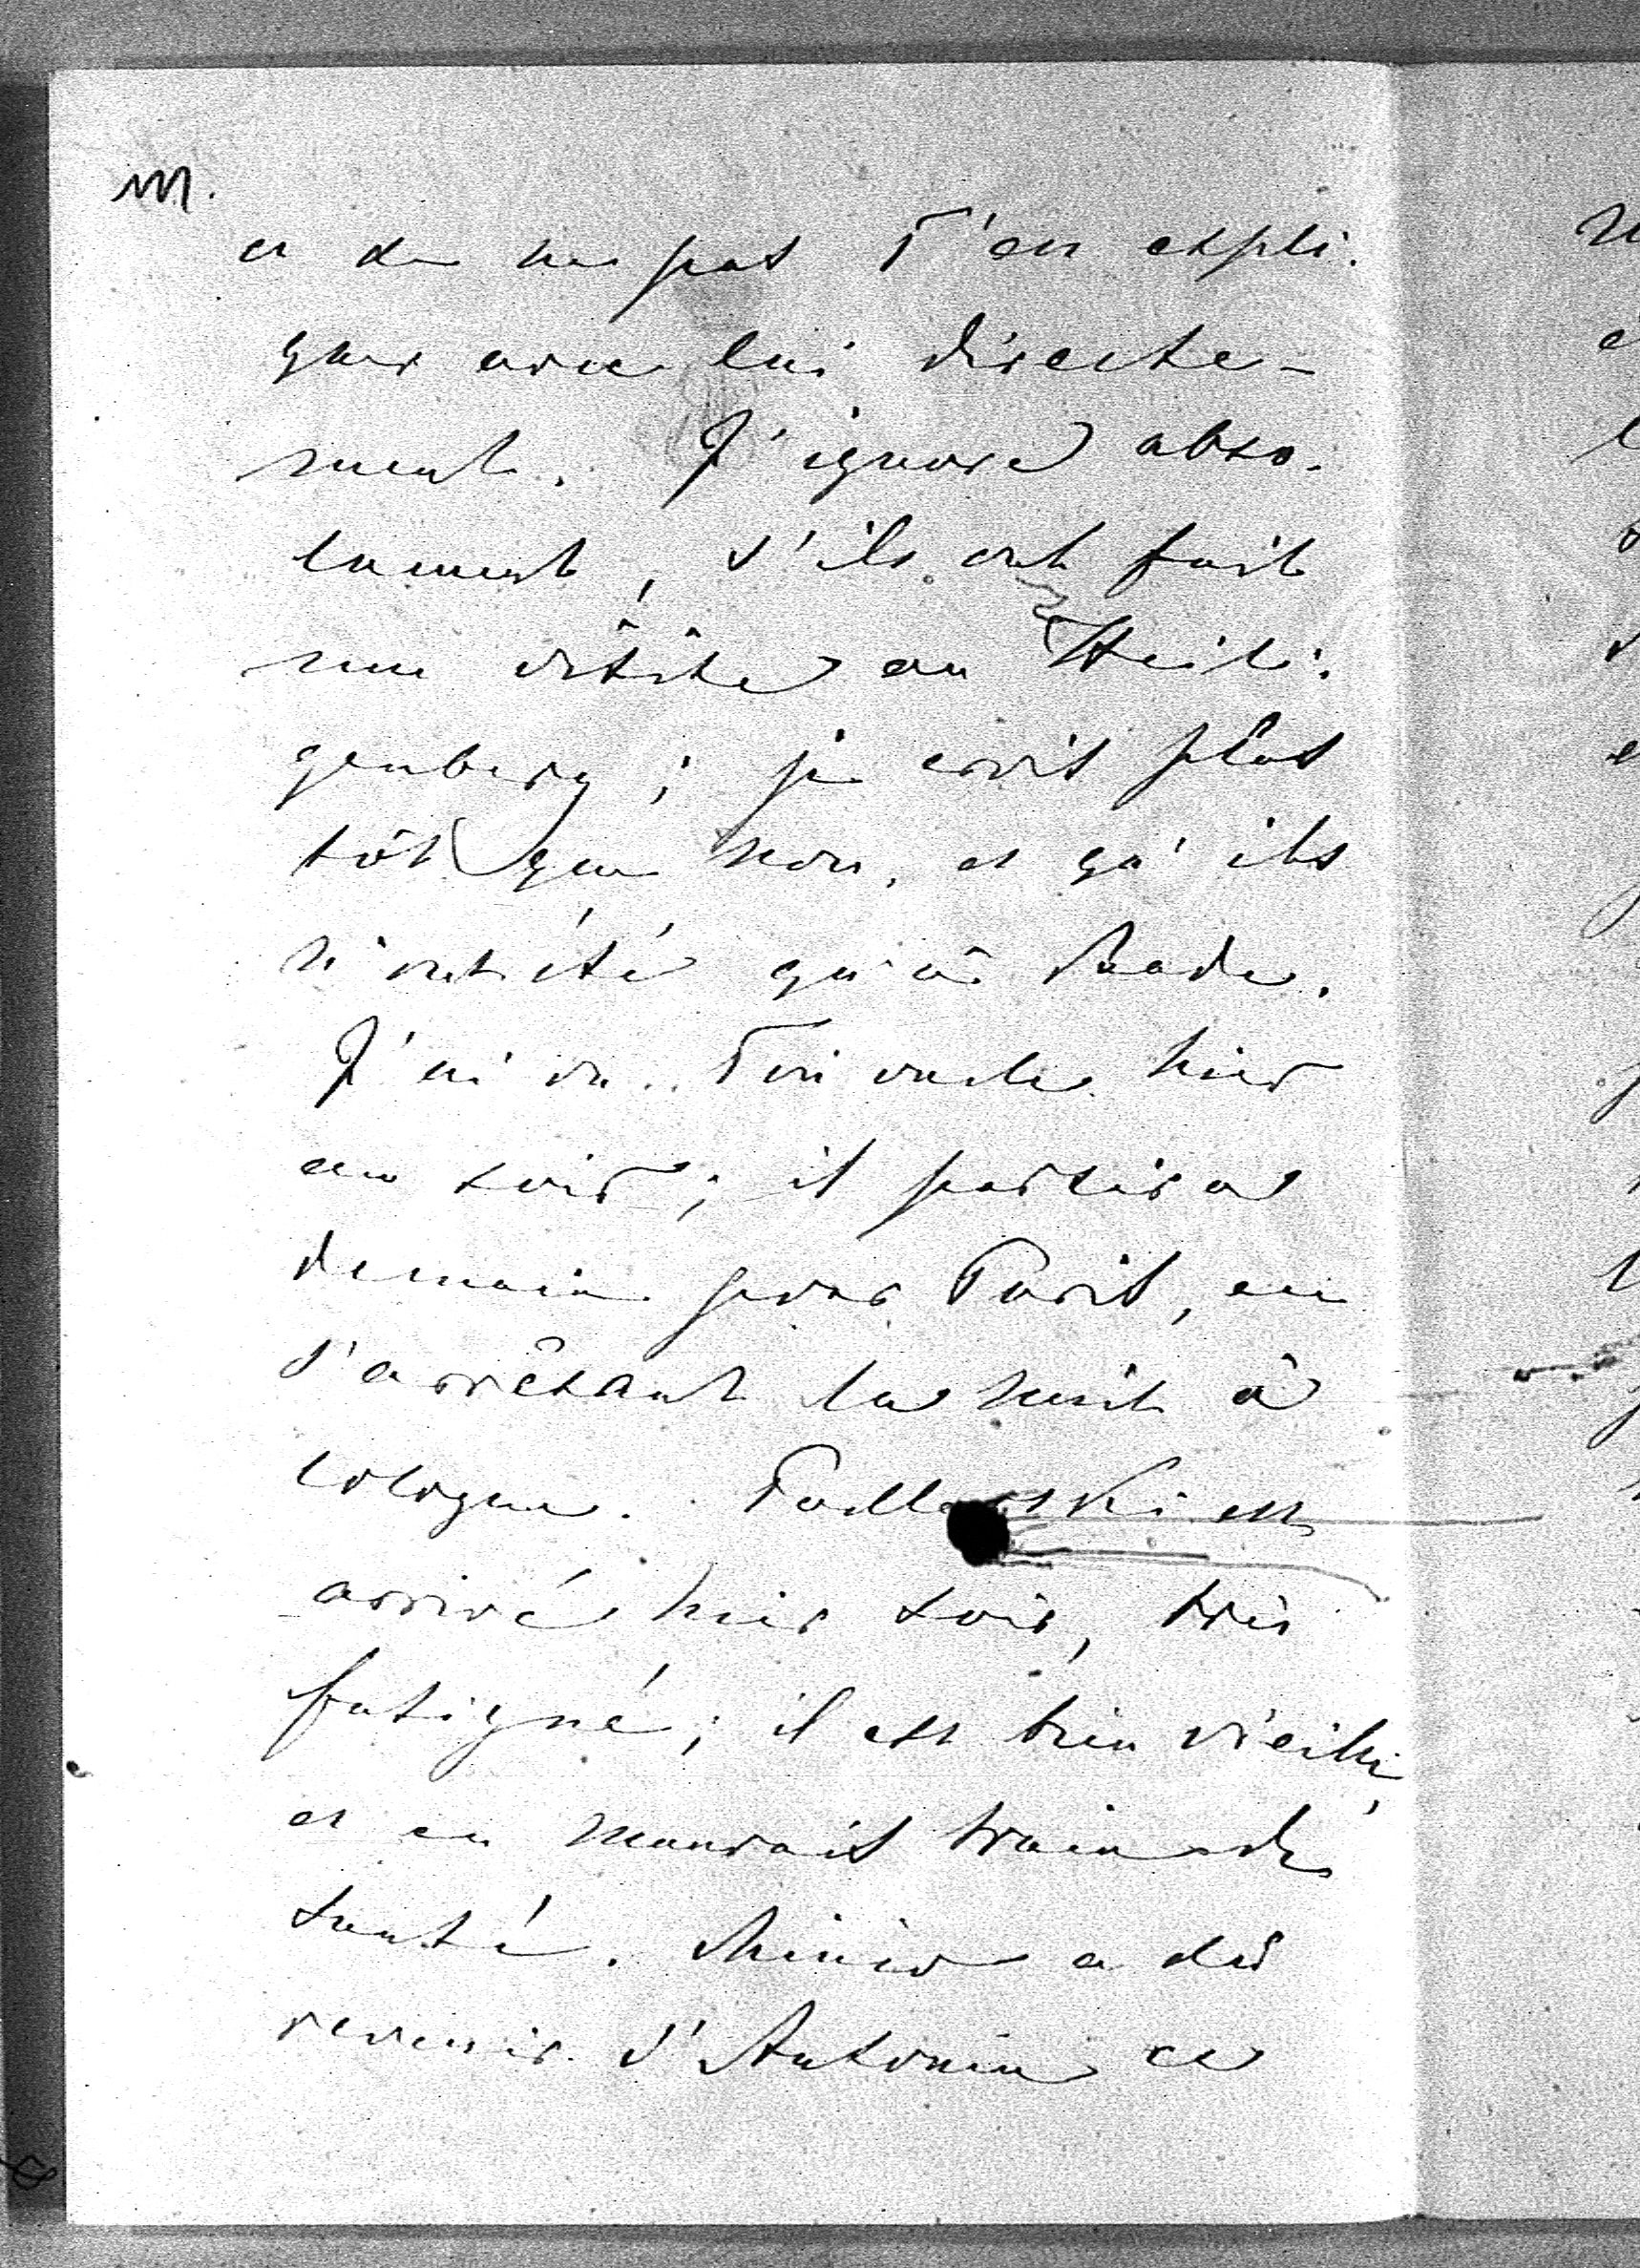 M.
et de ne pas T'en expli-
quer avec lui directe-
ment. J'ignore abso-
lument, s'ils ont fait
une visite au Heili-
genberg; je crois plus
tôt que non, et qu'ils
n'ont été qu'à Bade.
J'ai vu Ton oncle hier
au soir; il partira
demain pour Paris, en
s'arrêtant la nuit à
Cologne. est
arrivé hier soir, très
fatigué; il est bien vieilli,
et en mauvais train de
santé. a dû
revenir d'Antonin ce